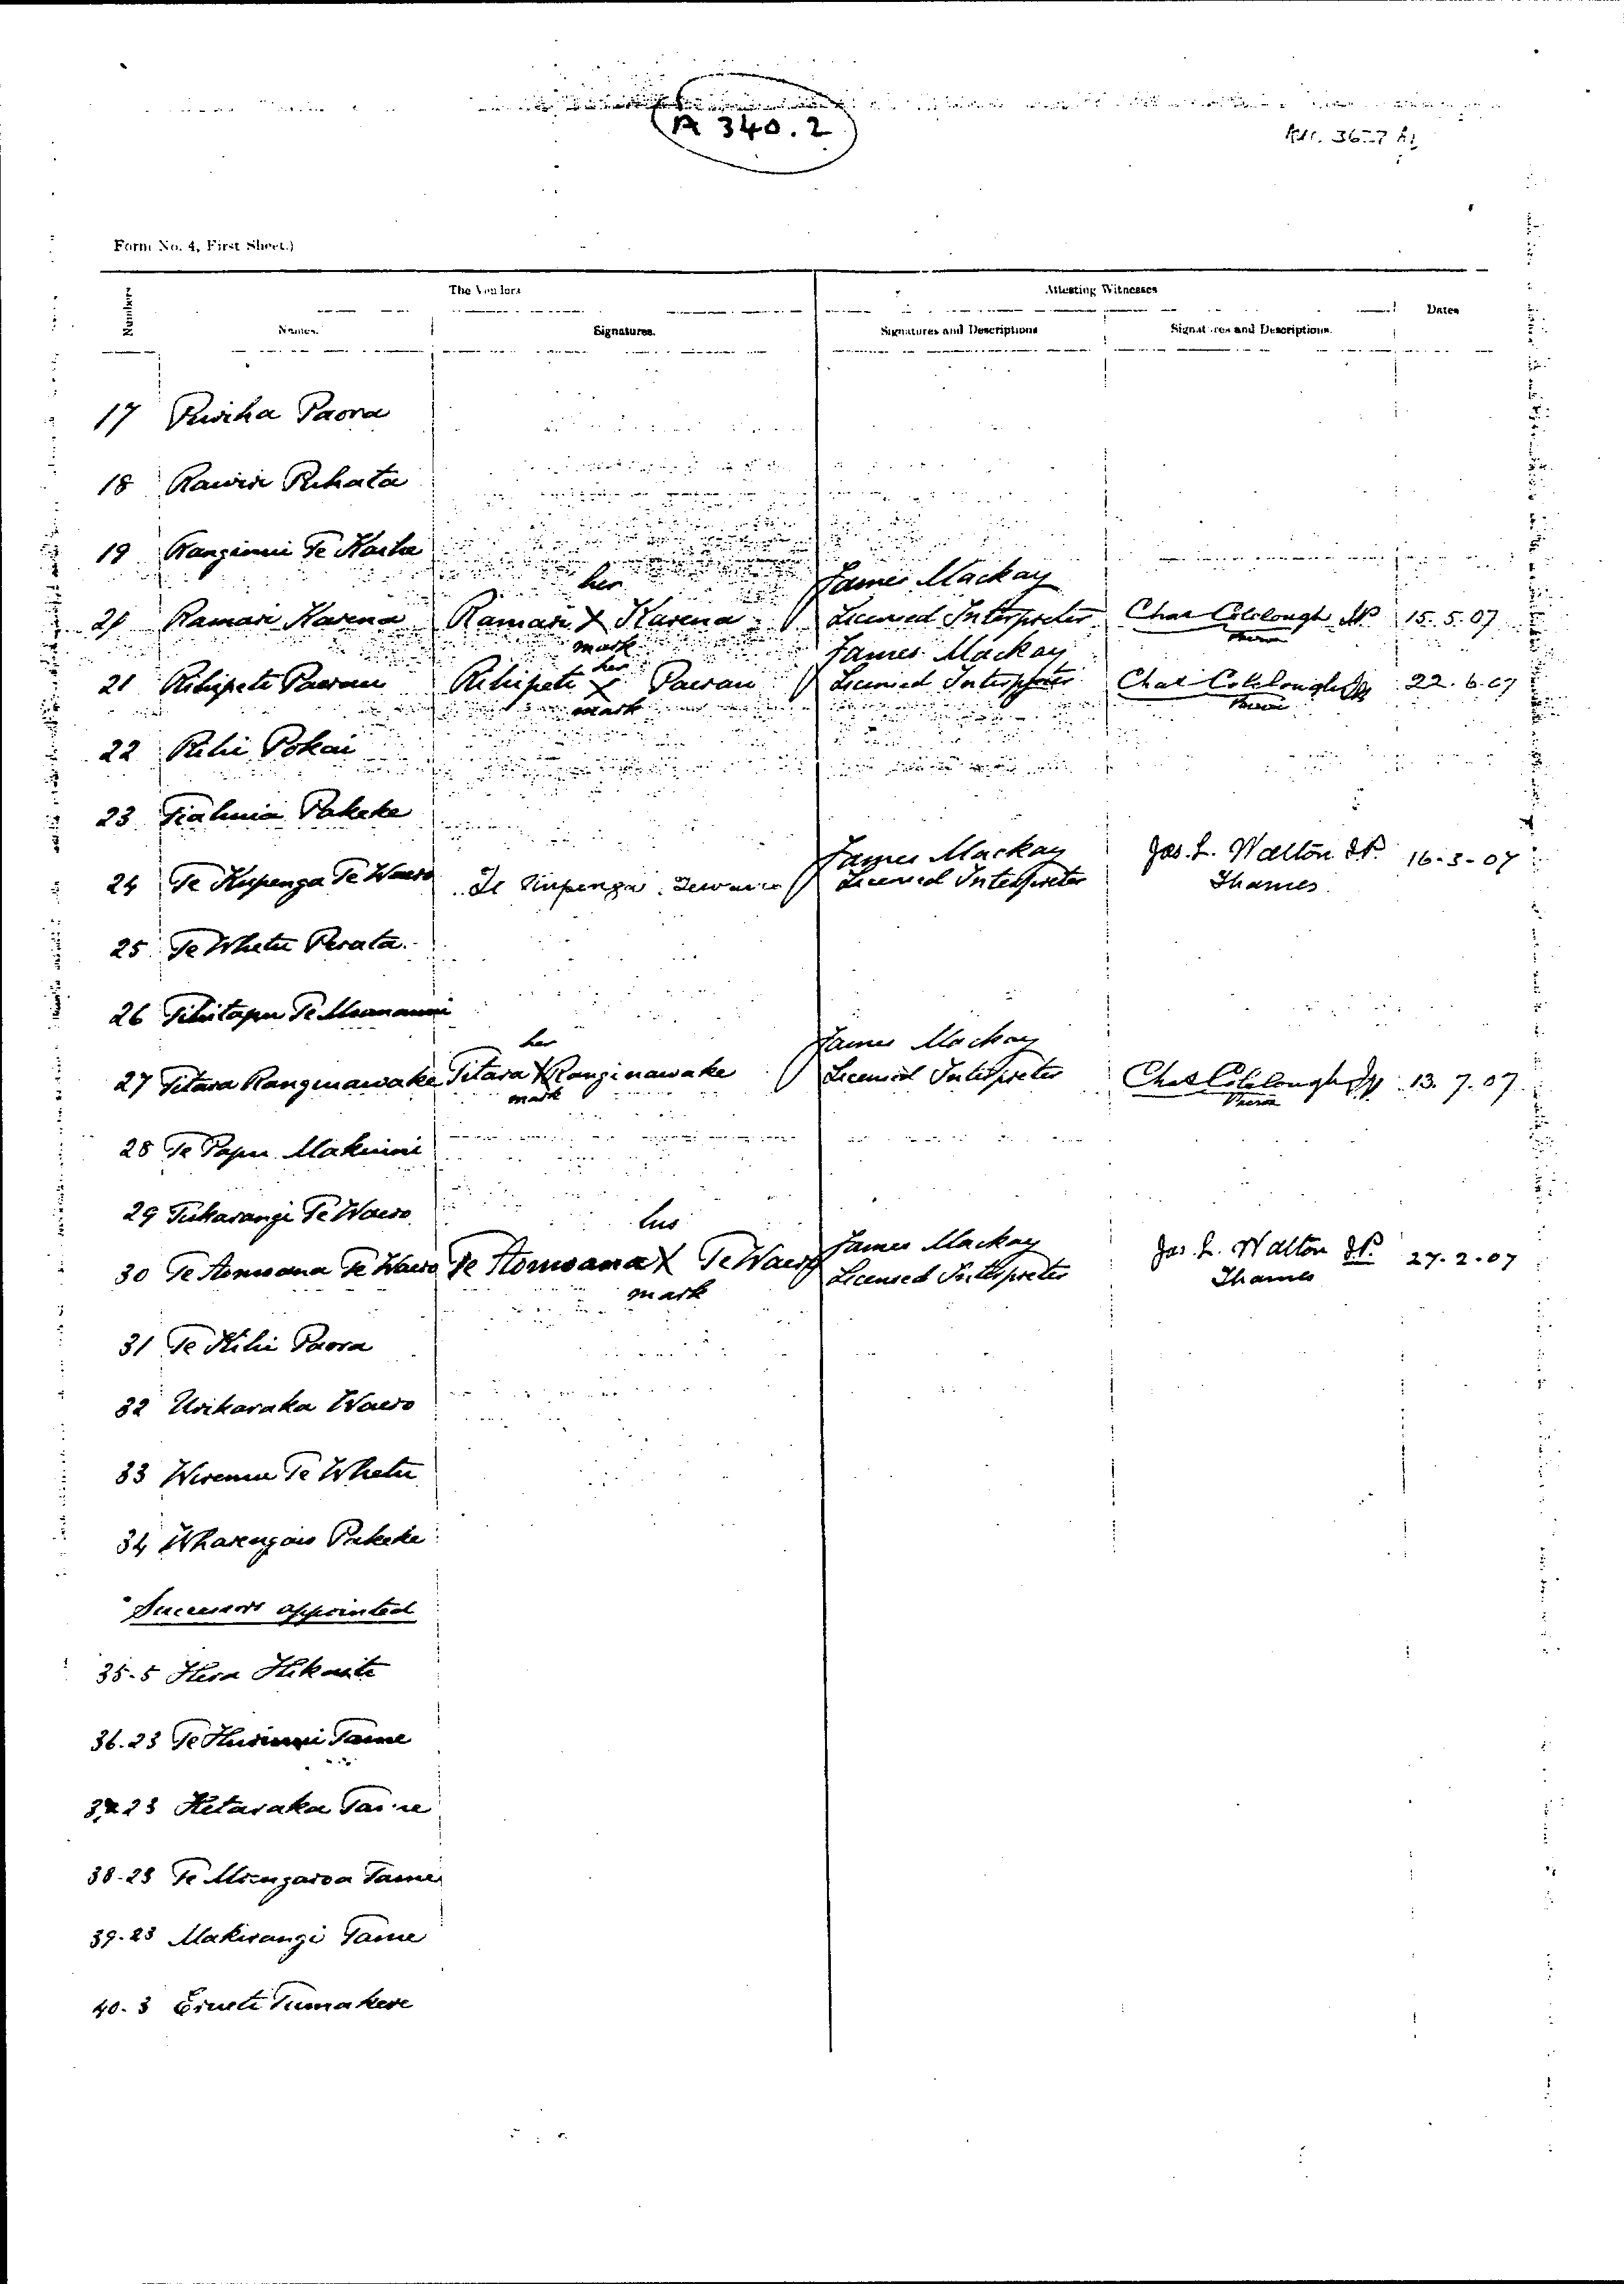 A 340.2
Form No. 4, First Sheet.)
Number
The Vendors
Attesting Witnesses
Dates
Names.
Signatures.
Signatures and Descriptions
Signatures and Descriptions.
17 Paora
18 Rawiri Rihata
19 Ranginui Te
her
James Mackay
21 Ramari Karena Ramari X Karena Licensed Interpreter Chas Colclough JP 15.5.07
mark
Paeroa
her
James Mackay
21 Rihipeti Paerau Rihipeti X Paerau Licensed Interpreter Chas Colclough JP 22.6.07
mark
Paeroa
22 Rihi Pokai
23 Tiahuia Pakeke
James Mackay Jas. L. Walton J.P. 16-3-07
24 Te Kupenga Te Waero Te Kupenga Tewaero Licensed Interpreter Thames
25 Te Whetu Perata
26 Tihitapu Te
her
James Mackay
27 Titara Ranginawake Titara X Ranginawake Licensed Interpreter Chas Colclough JP 13.7.07
mark
Paeroa
28 Te Papu
29 Tukarangi Te Waero
his
James Mackay Jas. L. Walton J.P. 27.2.07
30 Te Aomoana Te Waero Te Aomoana X Te Waero Licensed Interpreter Thames
mark
31 Te Kihi Paora
32 Urikaraka Waero
33 Wiremu Te Whetu
34 Wharengaio Pakeke
Successors appointed
35.5 Hera
36.23 Te Hurinui Tame
37.23 Hetaraka Tame
38-23 Te Mcengaroa Tame
39-23 Makirangi Tame
40.3 Erueti Tumakere